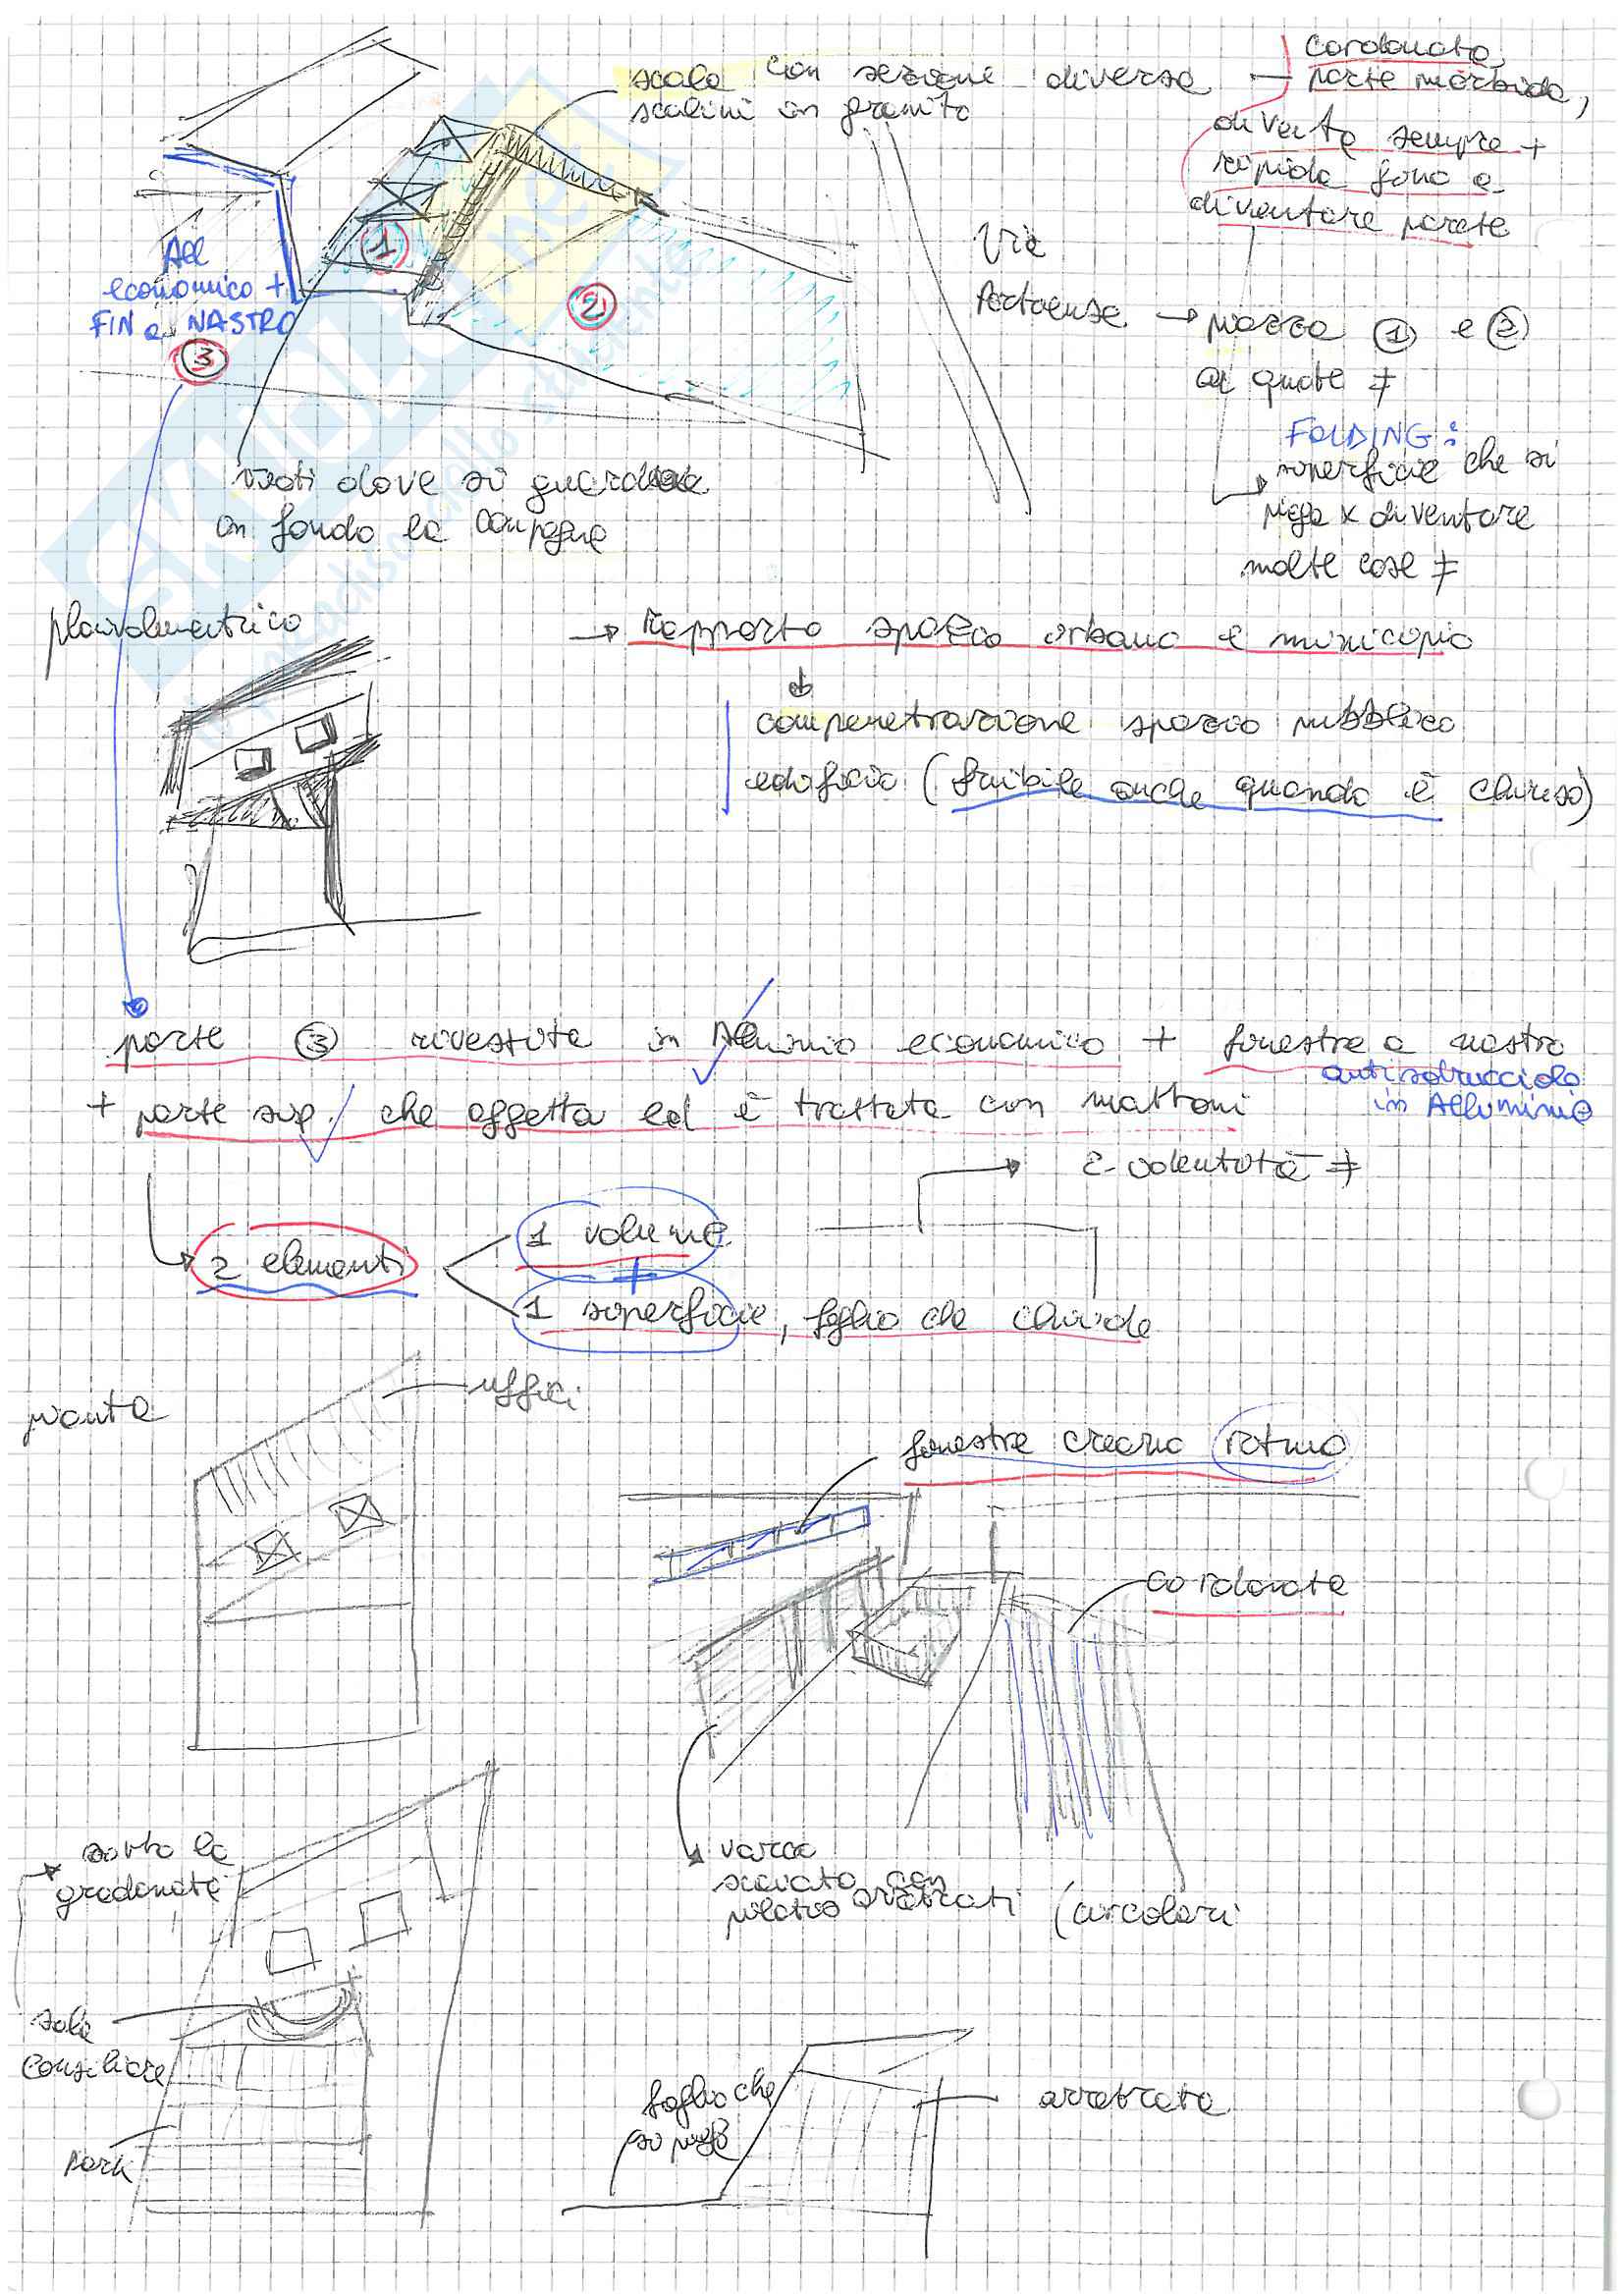 scala con sezioni diverse
scalini in granito
Cordonata,
parte morbida,
diventa sempre +
ripida fino a
diventare parete
1
2
All
economico +
FIN a NASTRO
3
Via
Portuense → piazza 1 e 2
a quote ≠
FOLDING:
superficie che si
piega x diventare
molte cose ≠
vuoti dove si guarda
in fondo la campagna
planivolumetrico
→ Rapporto spazio urbano e municipio
compenetrazione spazio pubblico
edificio (fruibile anche quando è chiuso)
parte 3 rivestita in Alluminio economico + finestre a nastro
antisdrucciolo
in Alluminio
+ parte sup. che aggetta ed è trattata con mattoni
2 elementi
1 volume
+
1 superficie, foglio che chiude
pianta
uffici
finestre creano ritmo
cordonata
varco
scavato con
pilastri arretrati (circolari
sotto la
gradonata
sala
consiliare
Park
foglio che
si piega
arretrata